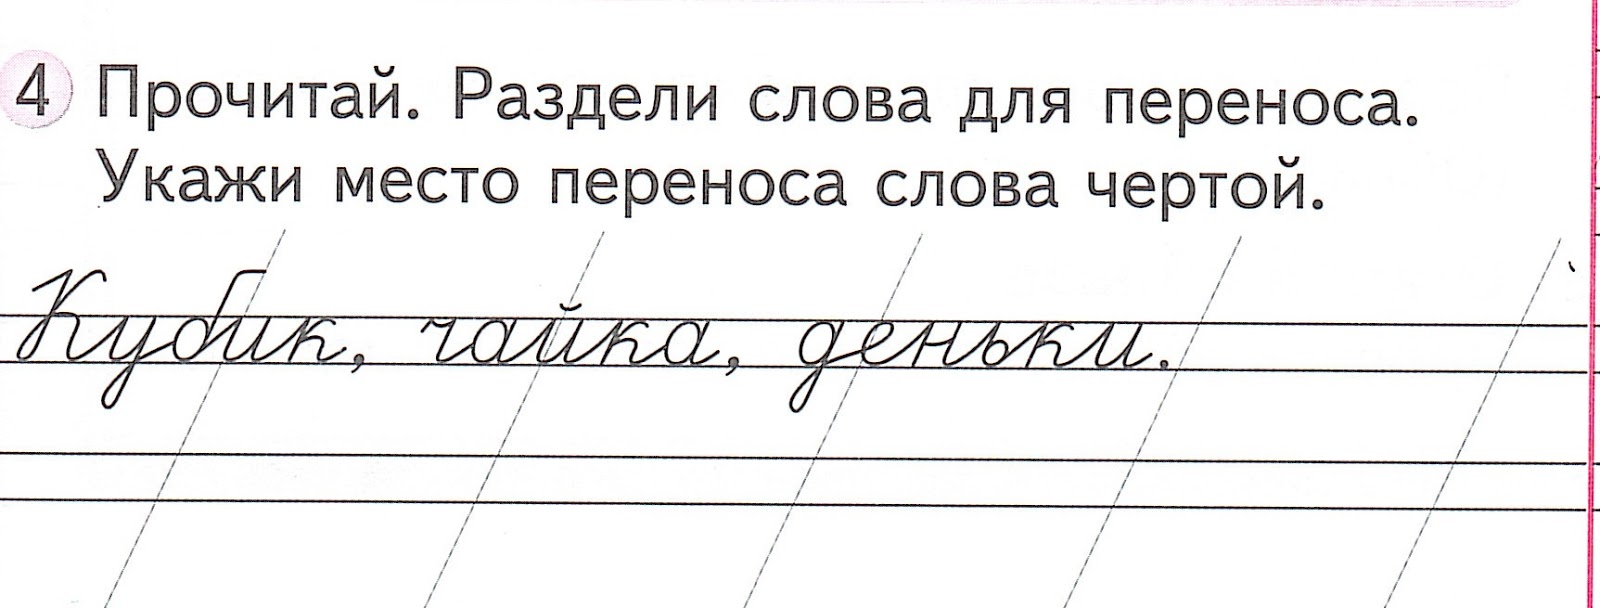 4 Прочитай. Раздели слова для переноса.
Укажи место переноса слова чертой.
Кубик, чайка, деньки.